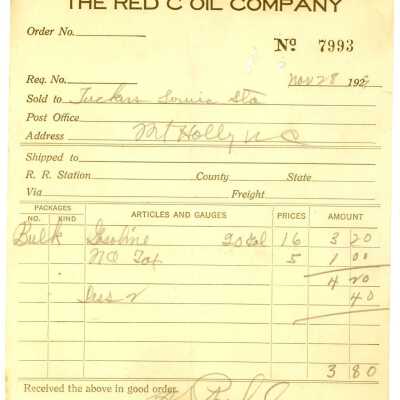 THE RED C OIL COMPANY
Order No.
No 7993
Req. No. Nov 28 192
Sold to Tuckers Service Sta
Post Office
Address Mt Holly N C
Shipped to
R. R. Station County State
Via Freight
PACKAGES NO. KIND ARTICLES AND GAUGES PRICES AMOUNT
Bulk Gasoline 20 Gal 16 3 20
NC Tax 5 1 00
4 20
Less 2 40
3 80
Received the above in good order.